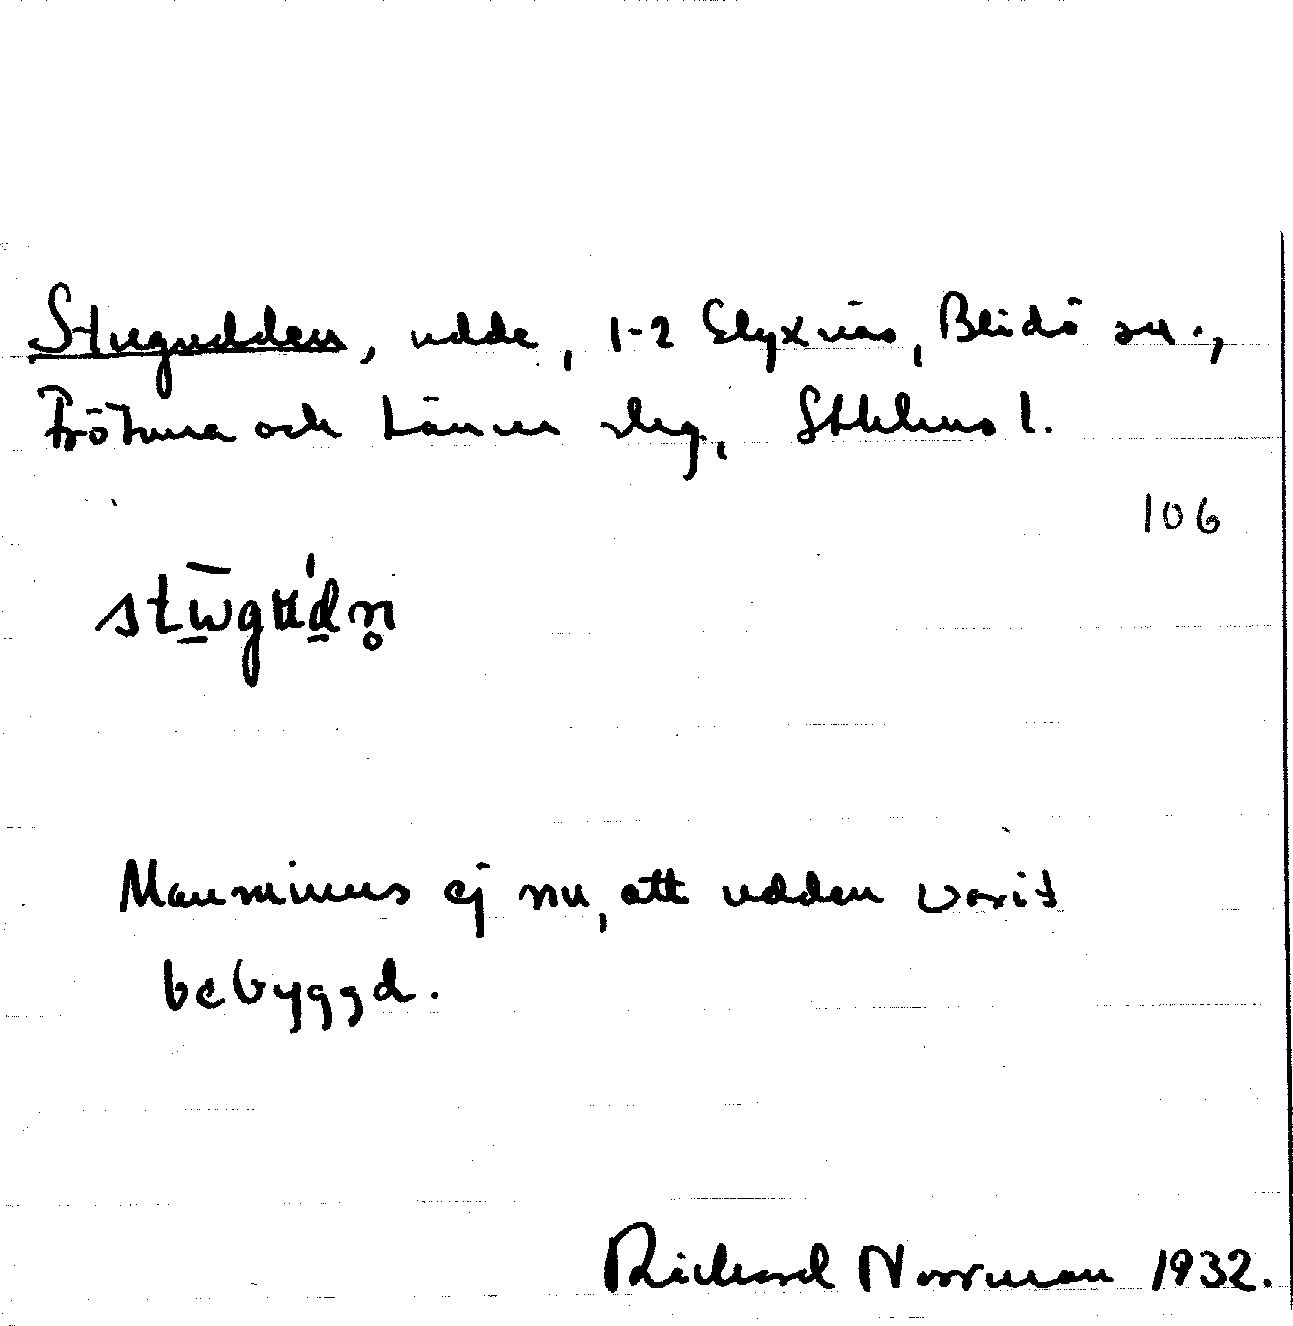 Stugudden, udde, 1-2 Glyxnäs, Blidö sn.,
Frötuna och Länna slg, Sthlms l.
106
Man minns ej nu, att udden varit
bebyggd.
Richard Norrman 1932.